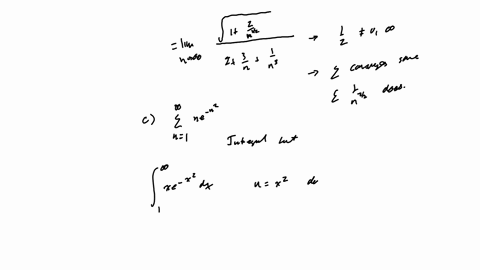 = lim n→∞ √(1 + 2/n²) / (2 + 3/n + 1/n³) → 1/2 ≠ 0, ∞
→ Σ converges since
Σ 1/n^(3/2) does.
c) ∞ Σ n=1 n e^(-n²)
Integral test
∫ 1 ∞ x e^(-x²) dx u = x² du